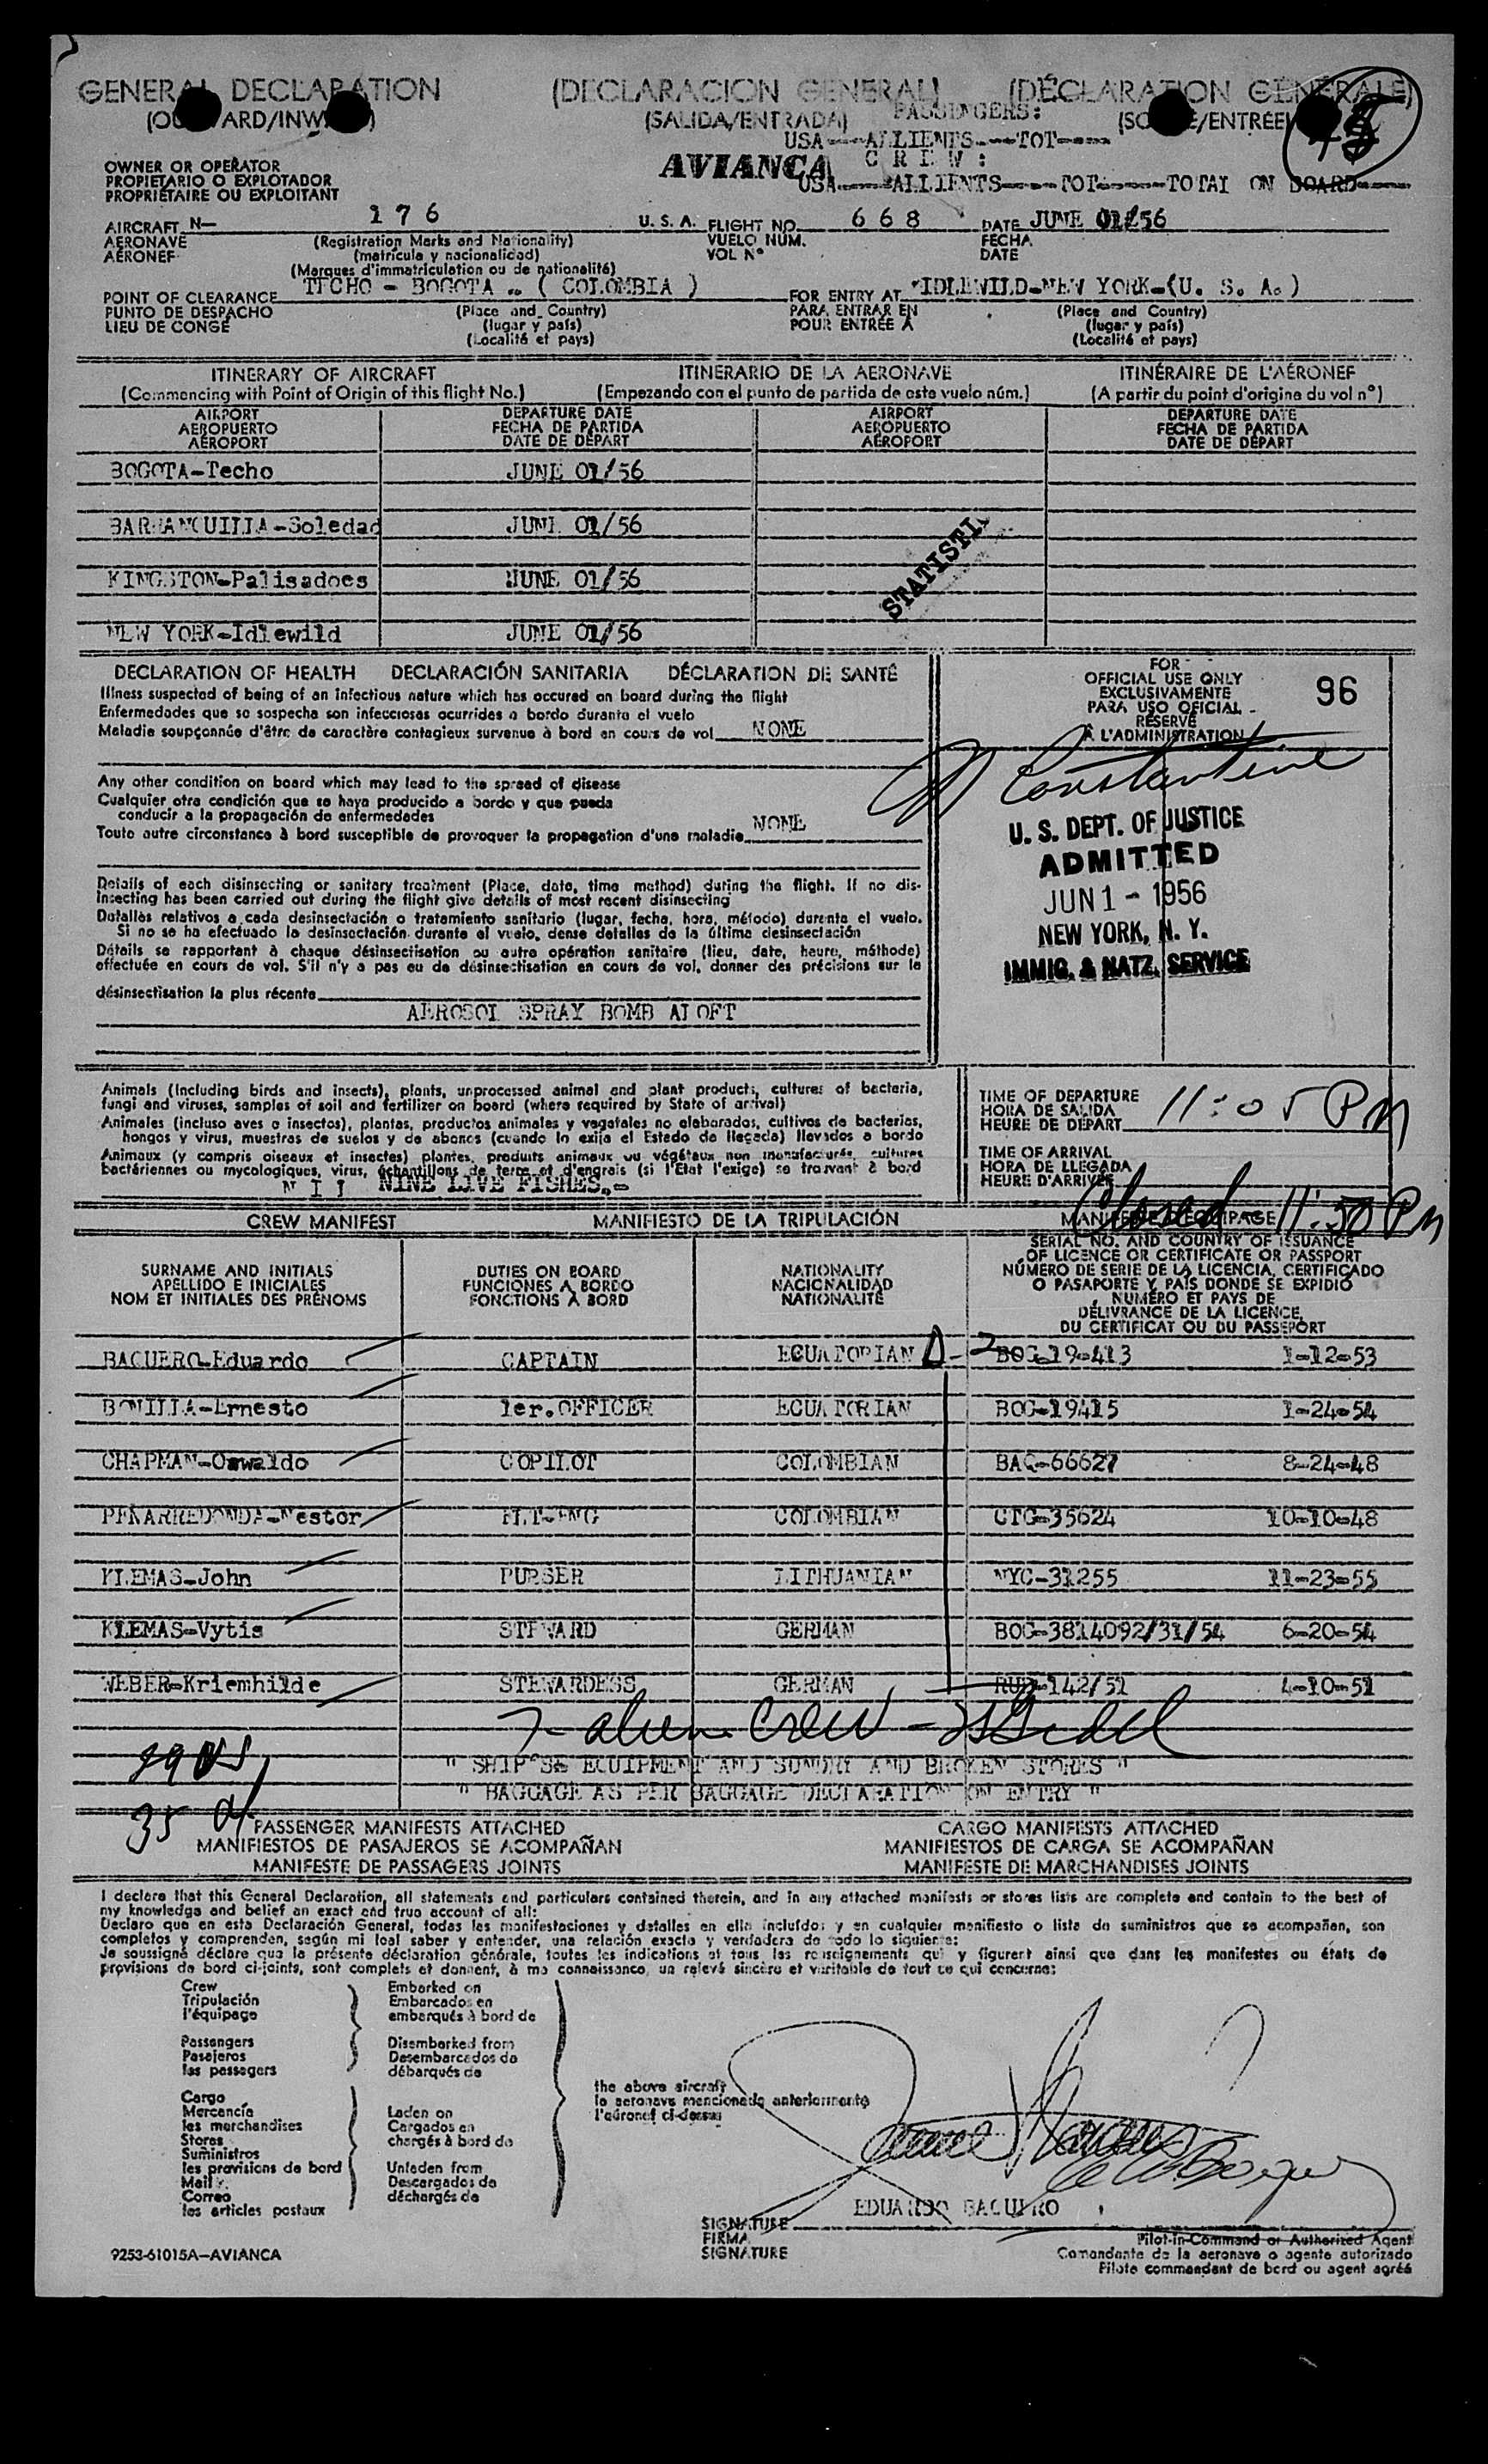 GENERAL DECLARATION (DECLARACION GENERAL) (DÉCLARATION GÉNÉRALE)
(OUTWARD/INWARD) (SALIDA/ENTRADA) (SORTIE/ENTRÉE)
PASSENGERS:
USA----ALLIENTS----TOT-----
C R E W :
USA-----ALLIENTS-----TOT------TOTAL ON BOARD-----
OWNER OR OPERATOR
PROPIETARIO O EXPLOTADOR
PROPRIÉTAIRE OU EXPLOITANT
AVIANCA
AIRCRAFT N— 1 7 6 U. S. A. FLIGHT NO. 6 6 8 DATE JUNE 01/56
AERONAVE (Registration Marks and Nationality) VUELO NÚM. FECHA
AÉRONEF (matrícula y nacionalidad) VOL N° DATE
(Marques d'immatriculation ou de nationalité)
POINT OF CLEARANCE TECHO - BOGOTA .. ( COLOMBIA ) FOR ENTRY AT IDLEWILD-NEW YORK-(U. S. A.)
PUNTO DE DESPACHO (Place and Country) PARA ENTRAR EN (Place and Country)
LIEU DE CONGÉ (lugar y país) POUR ENTRÉE A (lugar y país)
(Localité et pays) (Localité et pays)
ITINERARY OF AIRCRAFT ITINERARIO DE LA AERONAVE ITINÉRAIRE DE L'AÉRONEF
(Commencing with Point of Origin of this flight No.) (Empezando con el punto de partida de este vuelo núm.) (A partir du point d'origine du vol n°)
AIRPORT DEPARTURE DATE AIRPORT DEPARTURE DATE
AEROPUERTO FECHA DE PARTIDA AEROPUERTO FECHA DE PARTIDA
AÉROPORT DATE DE DÉPART AÉROPORT DATE DE DÉPART
BOGOTA-Techo JUNE 01/56
BARRANQUILLA-Soledad JUNE 01/56
KINGSTON-Palisadoes JUNE 01/56
NEW YORK-Idlewild JUNE 01/56
STATISTI
DECLARATION OF HEALTH DECLARACIÓN SANITARIA DÉCLARATION DE SANTÉ
Illness suspected of being of an infectious nature which has occured on board during the flight
Enfermedades que se sospecha son infecciosas ocurridas a bordo durante el vuelo
Maladie soupçonnée d'être de caractère contagieux survenue à bord en cours de vol NONE
Any other condition on board which may lead to the spread of disease
Cualquier otra condición que se haya producido a bordo y que pueda
conducir a la propagación de enfermedades
Toute autre circonstance à bord susceptible de provoquer la propagation d'une maladie NONE
Details of each disinsecting or sanitary treatment (Place, date, time method) during the flight. If no dis-
insecting has been carried out during the flight give details of most recent disinsecting
Detalles relativos a cada desinsectación o tratamiento sanitario (lugar, fecha, hora, método) durante el vuelo.
Si no se ha efectuado la desinsectación durante el vuelo, dense detalles de la última desinsectación
Détails se rapportant à chaque désinsectisation ou autre opération sanitaire (lieu, date, heure, méthode)
effectuée en cours de vol. S'il n'y a pas eu de désinsectisation en cours de vol, donner des précisions sur la
désinsectisation la plus récente
AEROSOL SPRAY BOMB ALOFT
FOR
OFFICIAL USE ONLY
EXCLUSIVAMENTE
PARA USO OFICIAL
RÉSERVÉ
À L'ADMINISTRATION
96
Constantine
U. S. DEPT. OF JUSTICE
ADMITTED
JUN 1 - 1956
NEW YORK, N. Y.
IMMIG. & NATZ. SERVICE
Animals (including birds and insects), plants, unprocessed animal and plant products, cultures of bacteria,
fungi and viruses, samples of soil and fertilizer on board (where required by State of arrival)
Animales (incluso aves e insectos), plantas, productos animales y vegetales no elaborados, cultivos de bacterias,
hongos y virus, muestras de suelos y de abonos (cuando lo exija el Estado de llegada) llevados a bordo
Animaux (y compris oiseaux et insectes) plantes, produits animaux ou végétaux non manufacturés, cultures
bactériennes ou mycologiques, virus, échantillons de terre et d'engrais (si l'État l'exige) se trouvant à bord
N I L NINE LIVE FISHES.-
TIME OF DEPARTURE
HORA DE SALIDA
HEURE DE DÉPART 11:05 PM
TIME OF ARRIVAL
HORA DE LLEGADA
HEURE D'ARRIVÉE
Closed - 11:50 PM
CREW MANIFEST MANIFIESTO DE LA TRIPULACIÓN MANIFESTE D'ÉQUIPAGE
SURNAME AND INITIALS DUTIES ON BOARD NATIONALITY
APELLIDO E INICIALES FUNCIONES A BORDO NACIONALIDAD
NOM ET INITIALES DES PRÉNOMS FONCTIONS À BORD NATIONALITÉ
SERIAL NO. AND COUNTRY OF ISSUANCE
OF LICENCE OR CERTIFICATE OR PASSPORT
NÚMERO DE SERIE DE LA LICENCIA, CERTIFICADO
O PASAPORTE Y PAÍS DONDE SE EXPIDIÓ
NUMÉRO ET PAYS DE
DÉLIVRANCE DE LA LICENCE,
DU CERTIFICAT OU DU PASSEPORT
BAQUERO-Eduardo CAPTAIN ECUATORIAN D-2 BOG-19-413 1-12-53
BONILLA-Ernesto 1er.OFFICER ECUATORIAN BOG-19415 1-24-54
CHAPMAN-Oswaldo COPILOT COLOMBIAN BAQ-66627 8-24-48
PEÑARREDONDA-Nestor FLT-ENG COLOMBIAN CTG-35624 10-10-48
KLEMAS-John PURSER LITHUANIAN NYC-31255 11-23-55
KLEMAS-Vytis STEWARD GERMAN BOG-3814092/31/54 6-20-54
WEBER-Kriemhilde STEWARDESS GERMAN RUD-142/51 4-10-51
7- alien crew -
" SHIP'S EQUIPMENT AND SUNDRY AND BROKEN STORES "
" BAGGAGE AS PER BAGGAGE DECLARATION ON ENTRY "
35
PASSENGER MANIFESTS ATTACHED CARGO MANIFESTS ATTACHED
MANIFIESTOS DE PASAJEROS SE ACOMPAÑAN MANIFIESTOS DE CARGA SE ACOMPAÑAN
MANIFESTE DE PASSAGERS JOINTS MANIFESTE DE MARCHANDISES JOINTS
I declare that this General Declaration, all statements and particulars contained therein, and in any attached manifests or stores lists are complete and contain to the best of
my knowledge and belief an exact and true account of all:
Declaro que en esta Declaración General, todas las manifestaciones y detalles en ella incluídos y en cualquier manifiesto o lista de suministros que se acompañan, son
completos y comprenden, según mi leal saber y entender, una relación exacta y verdadera de todo lo siguiente:
Je soussigné déclare que la présente déclaration générale, toutes les indications et tous les renseignements qui y figurent ainsi que dans les manifestes ou états de
provisions de bord ci-joints, sont complets et donnent, à ma connaissance, un relevé sincère et véritable de tout ce qui concerne:
Crew Embarked on
Tripulación Embarcados en
l'équipage embarqués à bord de
Passengers Disembarked from
Pasajeros Desembarcados de
les passagers débarqués de
the above aircraft
la aeronave mencionada anteriormente
l'aéronef ci-dessus
Cargo
Mercancía Laden on
les marchandises Cargados en
Stores chargés à bord de
Suministros
les provisions de bord Unladen from
Mail Descargados de
Correo déchargés de
les articles postaux
EDUARDO BAQUERO
SIGNATURE
FIRMA
SIGNATURE
Pilot-in-Command or Authorized Agent
Comandante de la aeronave o agente autorizado
Pilote commandant de bord ou agent agréé
9253-61015A—AVIANCA